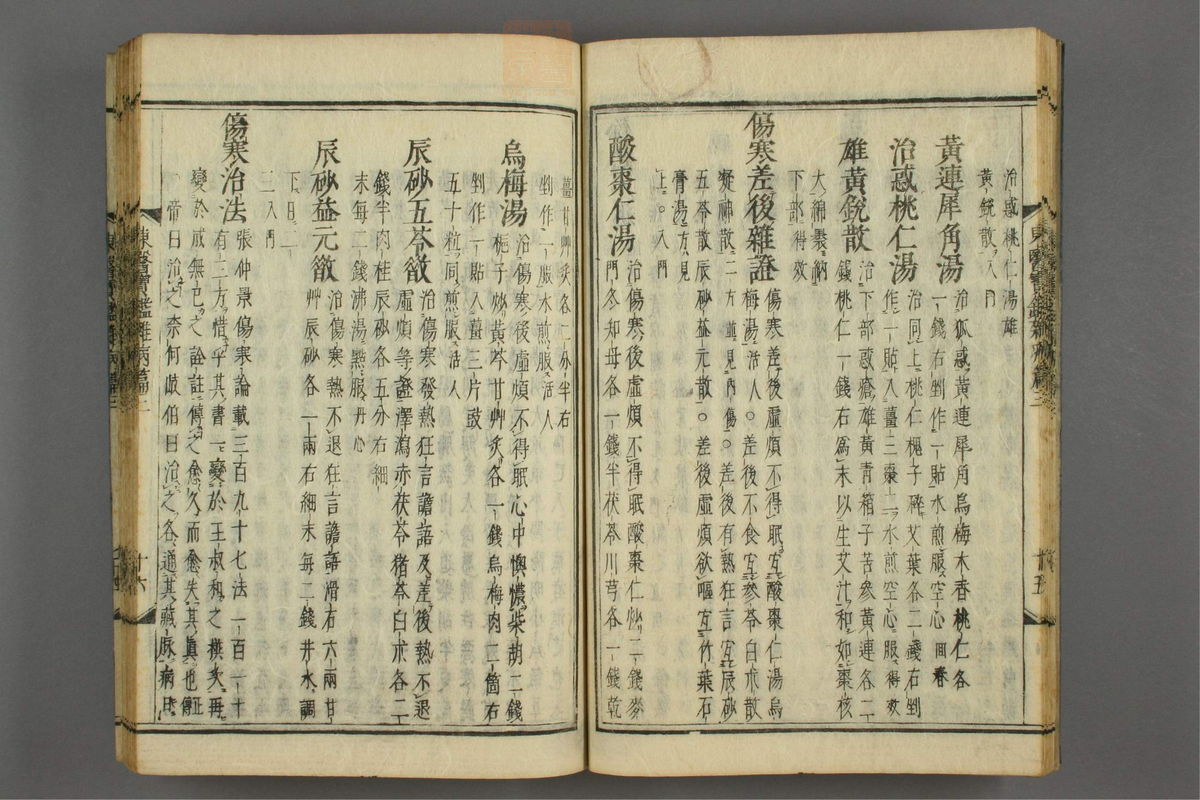 治惑桃仁湯雄
黃銳散入門
黃連犀角湯 治狐惑黃連犀角烏梅木香桃仁各
一錢右剉作一貼水煎服空心回春
治惑桃仁湯 治同上桃仁槐子碎艾葉各二錢右剉
作一貼入薑三棗二水煎空心服得效
雄黃銳散 治下部惑瘡雄黃靑箱子苦參黃連各二
錢桃仁一錢右爲末以生艾汁和如棗核
大綿裹納
下部得效
傷寒差後雜證 傷寒差後虛煩不得眠宜酸棗仁湯烏
梅湯活人○差後不食宜參苓白朮散
凝神散二方並見內傷○差後有熱狂言宜辰砂
五苓散辰砂益元散○差後虛煩欲嘔宜竹葉石
膏湯方見
上○入門
酸棗仁湯 治傷寒後虛煩不得眠酸棗仁炒二錢麥
門冬知母各一錢半茯苓川芎各一錢乾
薑甘艸灸各二分半右
剉作一服水煎服活人
烏梅湯 治傷寒後虛煩不得眠心中懊憹柴胡二錢
梔子炒黃芩甘艸灸各一錢烏梅肉二箇右
剉作一貼入薑三片豉
五十粒同煎服活人
辰砂五苓散 治傷寒發熱狂言譫語及差後熱不退
虛煩等證澤瀉赤茯苓猪苓白朮各二
錢半肉桂辰砂各五分右細
末每二錢沸湯點服丹心
辰砂益元散 治傷寒熱不退狂言譫語滑石六兩甘
艸辰砂各一兩右細末每二錢井水調
下日二
三入門
傷寒治法 張仲景傷寒論載三百九十七法一百一十
有二方惜乎其書一變於王叔和之撰次再
變於成無已之詮註傳之愈久而愈失其眞也正傳
帝曰治之奈何歧伯曰治之各通其藏脉病日